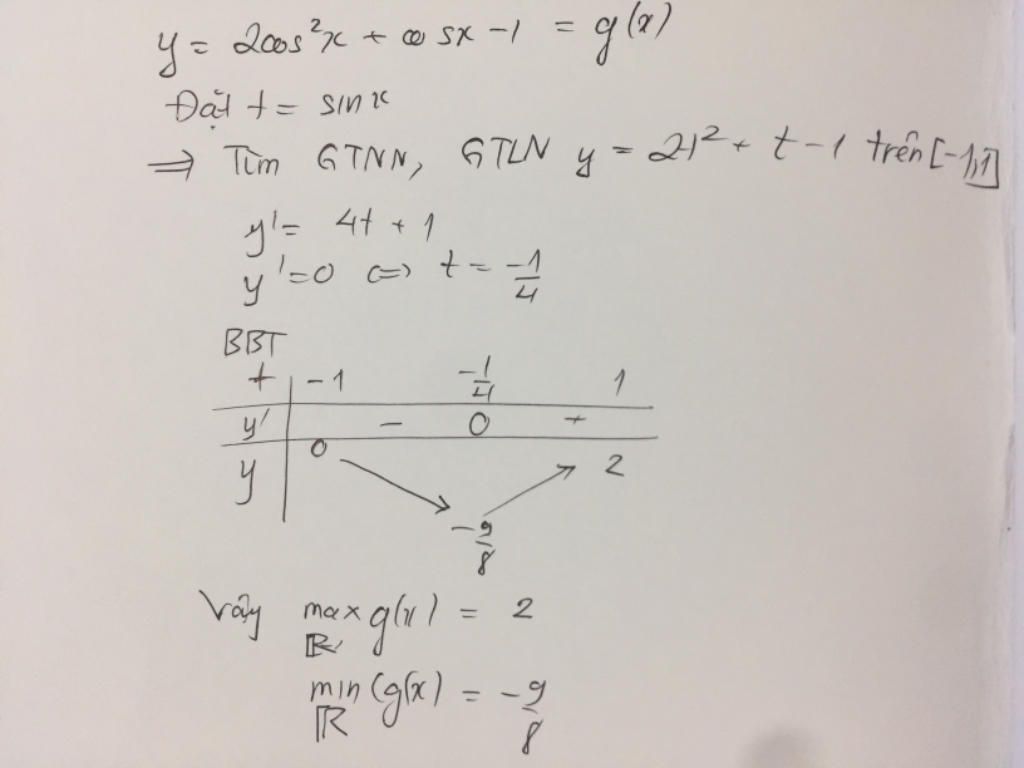 y = 2cos²x + cosx - 1 = g(x)
Đặt t = sinx
⇒ Tìm GTNN, GTLN y = 2t² + t - 1 trên [-1,1]
y' = 4t + 1
y' = 0 ⇔ t = -1/4
BBT
t | -1 -1/4 1
y' | - 0 +
y | 0 ↘ -9/8 ↗ 2
Vậy max g(x) = 2
ℝ
min (g(x) = -9/8
ℝ